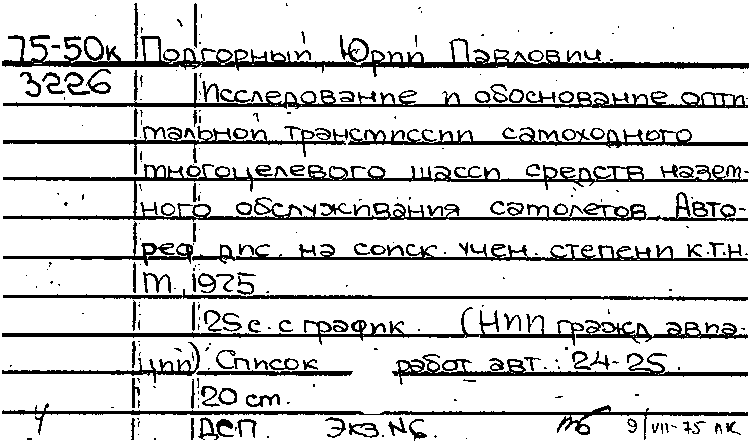 75-50к Подгорный, Юрий Павлович.
3226 Исследование и обоснование опти-
мальной трансмиссии самоходного
многоцелевого шасси средств назем-
ного обслуживания самолетов. Авто-
реф. дис. на соиск. учен. степени к.т.н.
М., 1975.
25 с. с график. (НИИ гражд. авиа-
ции) Список работ авт.: 24-25.
20 см.
ДСП. Экз. № 6. 9/VII-75